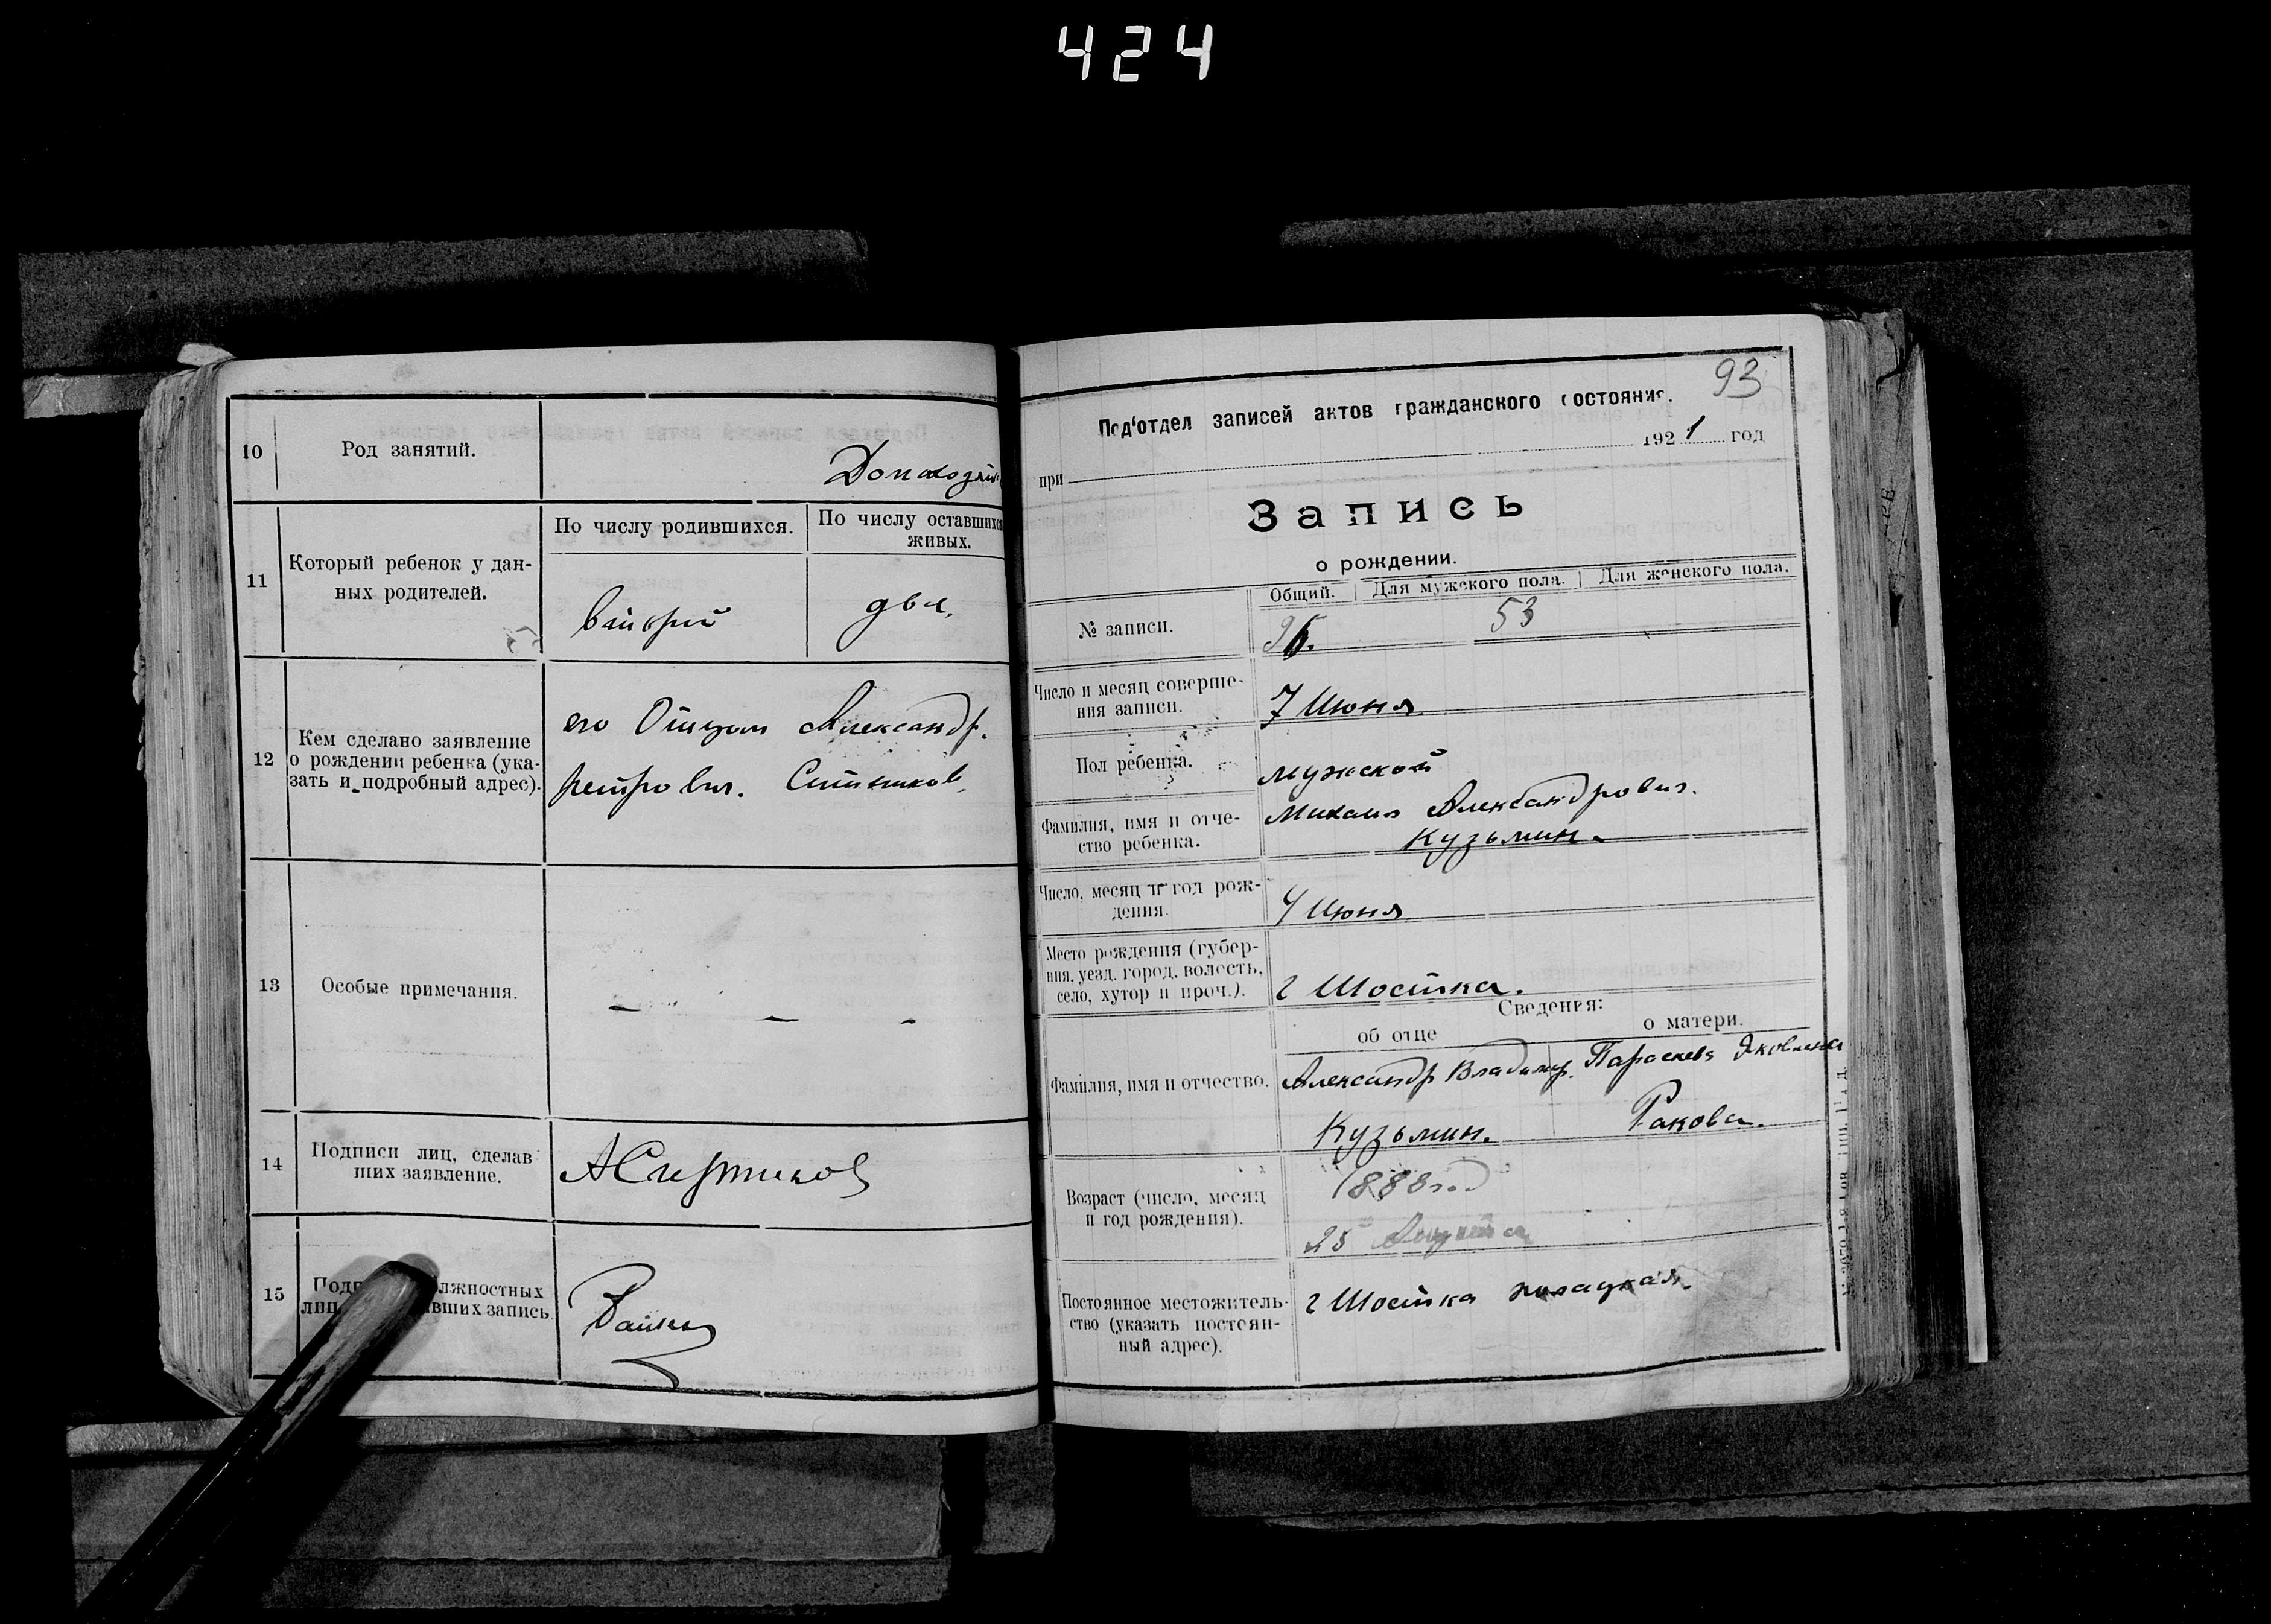 424
10 Род занятий.
Домохозяйк
11 Который ребенок у дан-
ных родителей.
По числу родившихся.
второй
По числу оставшихся
живых.
два.
12 Кем сделано заявление
о рождении ребенка (ука-
зать и подробный адрес).
его Отцом Александр.
Петрович. Ситников.
13 Особые примечания.
— — —
14 Подписи лиц, сделав
ших заявление.
15
лжностных
вших запись
93
Под'отдел записей актов гражданского состояния.
при 1921 год
Запись
о рождении.
№ записи.
Общий. Для мужского пола. Для женского пола.
53
Число и месяц соверше-
ния записи.
7 Июня
Пол ребенка.
мужской
Фамилия, имя и отче-
ство ребенка.
Михаил Александрович.
Кузьмин.
Число, месяц и год рож-
дения.
4 Июня
Место рождения (губер-
ния, уезд, город, волость,
село, хутор и проч.).
г Шостка.
Сведения:
об отце о матери.
Фамилия, имя и отчество.
Александр Владимир. Параскева Яковлевна
Кузьмин. Ракова.
Возраст (число, месяц
и год рождения).
1888 год
25 Августа
Постоянное местожитель-
ство (указать постоян-
ный адрес).
г Шостка